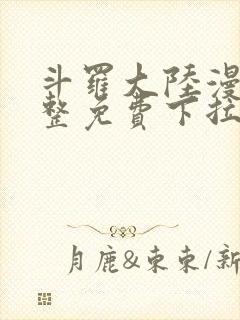 斗羅大陸漫
整免費下拉
月鹿&東東/新